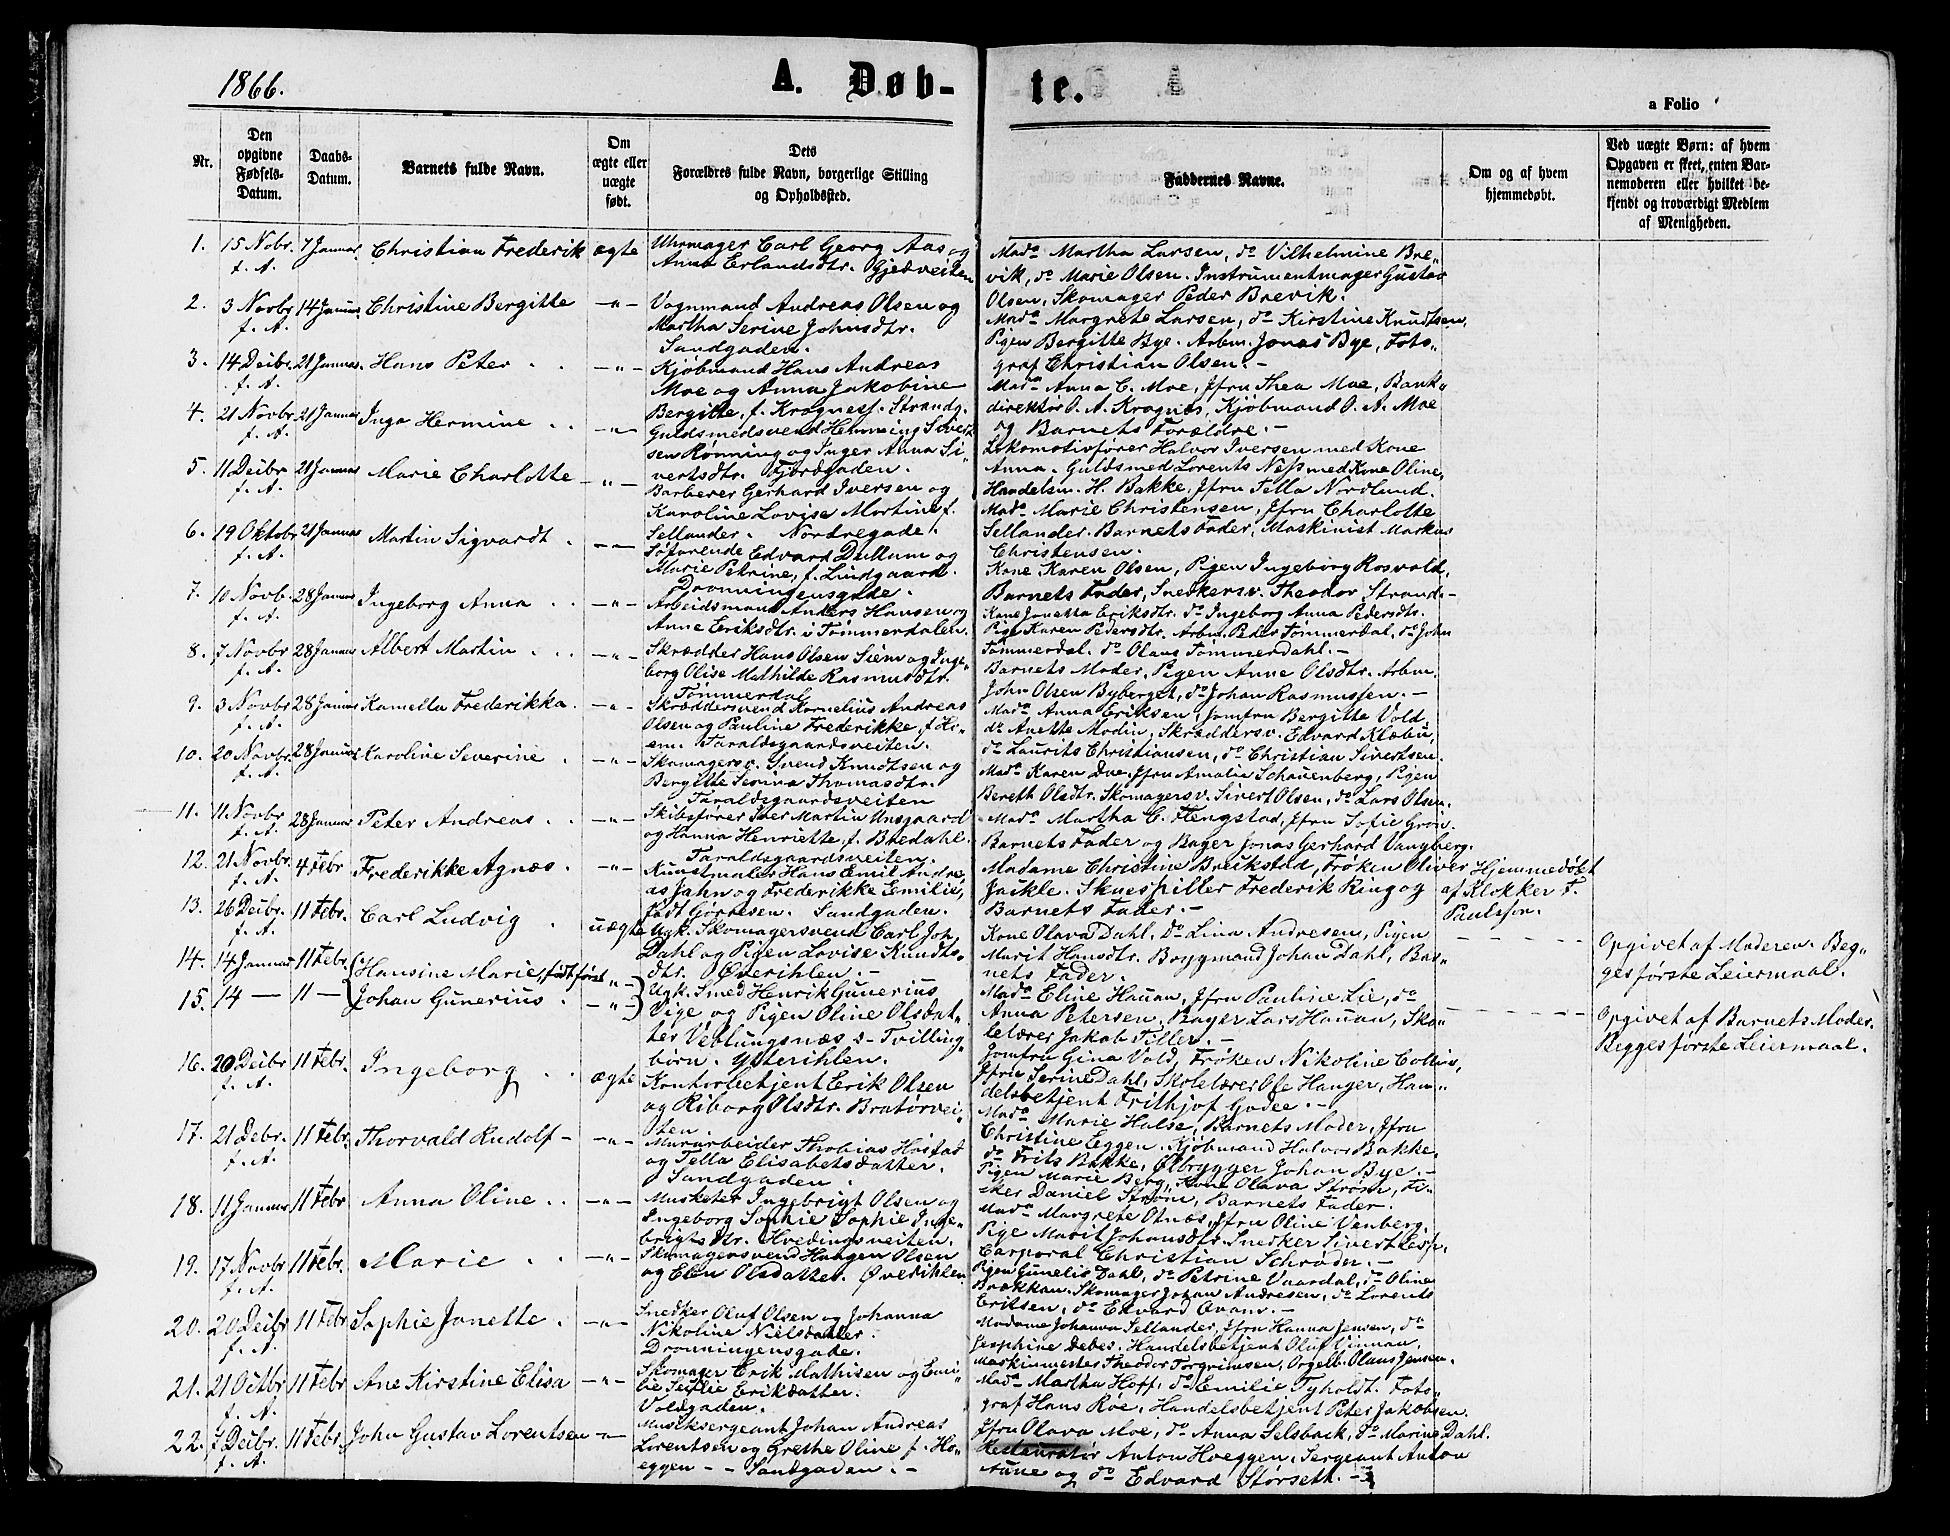 1866.
A. Døb-
te.
a Folio
Nr.
Den opgivne Fødsels-Datum.
Daabs-Datum.
Barnets fulde Navn.
Om ægte eller uægte født.
Dets Forældres fulde Navn, borgerlige Stilling og Opholdssted.
Faddernes Navne.
Om og af hvem hjemmedøbt.
Ved uægte Børn: af hvem Opgaven er skeet, enten Barnemoderen eller hvilket bekjendt og troværdigt Medlem af Menigheden.
1. 15 Novbr f. A. 7 Januar Christian Frederik ægte
Uhrmager Carl Georg Aas og
Anna Erlandsdtr. Gjetveiten
2. 3 Novbr f. A. 14 Januar Christine Bergitte -"-
Vognmand Andreas Olsen og
Martha Serine Johnsdtr.
Sandgaden.
3. 14 Decbr. f. A. 21 Januar. Hans Peter -"-
Kjøbmand Hans Andreas
Moe og Anna Jakobine
Bergitte, f. Kragness. Strandg.
4. 21 Novbr f. A. 21 Januar Inga Hermine -"-
Guldsmedsvend Henning Sivert
sen Rönning og Inger Anna Si-
vertsdtr. Fjordgaden.
5. 11 Decbr f. A. 21 Januar Marie Charlotte -"-
Barberer Gerhard Iversen og
Karoline Lovise Martine f.
Sellander. Nordregade.
6. 19 Oktobr f. A. 21 Januar Martin Sigvardt -"-
Söfarende Edvard Dullum og
Marie Petrine, f. Lindgaard.
Dronningensgade.
7. 10 Novb. f. A. 28 Januar Ingeborg Anna -"-
Arbeidsmand Anders Hansen og
Anne Eriksdtr. i Tömmerdalen.
8. 7 Novbr f. A. 28 Januar Albert Martin -"-
Skrædder Hans Olsen Siem og Inge-
borg Olise Mathilde Rasmusdtr.
Tömmerdal
9. 3 Novbr f. A. 28 Januar Kamella Frederikka. -"-
Skræddersvend Kornelius Andreas
Olsen og Pauline Frederikke, f. Ho-
em. Taraldsgaardsveiten.
10. 20 Novbr. f. A. 28 Januar Karoline Severine -"-
Skomagersv. Svend Knudtsen og
Bergitte Serine Thomasdtr.
Taraldsgaardsveiten
11. 11. Novbr f. A. 28 Januar Peter Andreas -"-
Skibsförer Iver Martin Unsgaard
og Hanna Henriette, f. Bredahl.
Taraldsgaardsveiten.
12. 21 Novbr. f. A. 4 Febr Frederikke Agnæs. -"-
Kunstmaler Hans Emil Andre-
as Jahn og Frederikke Emilie,
födt Görresen. Sandgaden.
13. 26 Decbr. f. A. 11 Febr. Carl Ludvig uægte
Ugk. Skomagersvend Carl Joh.
Dahl og Pigen Lovise Knudts-
dtr. Överihlen.-
14. 14 Januar 11 Febr. Hansine Marie, födt först -"-
15. 14 — 11 — Johan Gunerius -"-
Ugk. Smed Henrik Gunerius
Vige og Pigen Oline Olsdat-
ter Veblungsnæs - Tvilling-
börn. Ytterihlen.
16. 20 Decbr f. A. 11 Febr. Ingeborg ægte
Kontorbetjent Erik Olsen
og Riborg Olsdtr. Bratörvei-
ten.
17. 21 Debr. f. A. 11 Febr. Thorvald Rudolf -"-
Murarbeider Thobias Hostad
og Tella Elisabetsdatter.
Sandgaden.
18. 11 Januar 11 Febr Anna Oline -"-
Musketer Ingebrigt Olsen og
Ingeborg Sophie Sophie Inge-
brigtsdtr. Hvedingsveiten.
19. 17. Novbr f. A. 11 Febr. Marie -"-
Skomagersvend Haagen Olsen
og Elen Olsdatter. Överihlen
20. 20 Decbr f. A. 11 Febr Sophie Janette -"-
Snedker Oluf Olsen og Johanna
Nikoline Nielsdatter.
Dronningensgade.
21. 21 Octbr f. A. 11 Febr Ane Kirstine Elisa -"-
Skomager Erik Mathisen og Emi-
lie Erikdatter.
Voldgaden.
22. 7 Decbr. f. A. 11 Febr. John Gustav Lorentsen -"-
Musiksergeant Johan Andreas
Lorentsen og Grethe Oline f. Ho-
eggen - - Sandgaden. -
Mada Martha Larsen, do Vilhelmine Bre-
vik, do Marie Olsen. Instrumentmager Gustav
Olsen, Skomager Peder Brevik.
Mada Margrete Larsen, do Kirstine Knudtsen,
Pigen Bergitte Bye. Arbm. Jonas Bye, Foto-
graf Christian Olsen. -
Mada Anna C. Moe, Jfru Thea Moe, Bank-
direktör O. A. Kragnæs, Kjöbmand O. A. Moe
og Barnets Forældre. -
Lokomotivförer Halvor Iversen med Kone
Anna. Guldsmed Lorents Ness med Kone Oline,
Handelsm. H. Bakke. Jfru Tella Nordlund.
Mada Marie Christensen, Jfru Charlotte
Sellander. Barnets Fader, Maskinist Markus
Christensen.
Kone Karen Olsen, Pigen Ingeborg Rosvold,
Barnets Fader, Snedkersv. Theodor Strand.-
Kone Jonetta Eriksdtr. do Ingeborg Anna Pedersdtr.
Pige Karen Pedersdtr. Arbm. Peter Tömmerdal, do John
Tömmerdal. do Olaus Tömmerdahl. -
Barnets Moder, Pigen Anne Olsdtr. Arbm.
John Olsen Byberget, do Johan Rasmussen. -
Mada Anna Eriksen, Jomfru Bergitte Vold,
do Anette Modin, Skræddersv. Edvard Klæbu,
do Laurits Christiansen, do Christian Sivertsen.
Mada Karen Due. Jfru Amalia Schauenberg, Pigen
Bereth Olsdtr. Skomagersv. Sivert Olsen, do Lars Olsen.
Mada Martha C. Flengstad, Jfru Sofie Grön.
Barnets Fader og Bager Jonas Gerhard Vangberg.
Madame Christine Breikstad, Fröken Oliver
Jackle. Skuespiller Frederik Ring og
Barnets Fader. -
Hjemmedöbt
af Klokker F.
Paulsson.
Kone Olava Dahl, do Lina Andresen, Pigen
Marit Hansdtr. Brygmand Johan Dahl, Bar-
nets Fader.
Opgivet af Moderen. Beg-
ges förste Leiermaal.
Mada Eline Hauan, Jfru Pauline Lie, do
Anna Petersen. Bager Lars Hauan, Sko-
lelærer Jakob Tiller. -
Opgivet af Barnets Moder.
Begges förste Leiermaal.
Jomfru Gina Vold, Fröken Nikoline Collin,
Jfru Serine Dahl, Skolelærer Ole Hanger, Han-
delsbetjent Frithjof Godee. -
Mada Marie Halse, Barnets Moder, Jfru
Christine Eggen. Kjöbmand Halvor Bakke,
do Frits Bakke, Ölbrygger Johan Bye. -
Pigen Marie Berg, Kone Olava Ström, Fi-
sker Daniel Ström, Barnets Fader.
Mada Margrete Otnæs, Jfru Oline Venberg.
Pige Marit Johansdtr. Snedker Sivert
Carporal Christian Schröder. -
Pigen Gunelie Dahl, do Petrine Vaardal, do Oline
Brækkan. Skomager Johan Andresen, do Lorents
Eriksen, do Edvard Qvam. -
Madame Johanna Sellander, Jfru Hanna Jensen, do
Josephine Debes. Handelsbetjent Oluf Qinnan,
Maskinmester Theodor Torgrimsen, Orgelb. Olaus Jensen.
Mada Martha Hoff, do Emilie Tyholdt. Foto-
graf Hans Röe, Handelsbetjent Peter Jakobsen.
Jfru Olava Moe, do Anna Selsbak, do Marine Dahl.
Restauratör Anton Hoeggen, Sergeant Anton
Aune og do Edvard Störseth. -